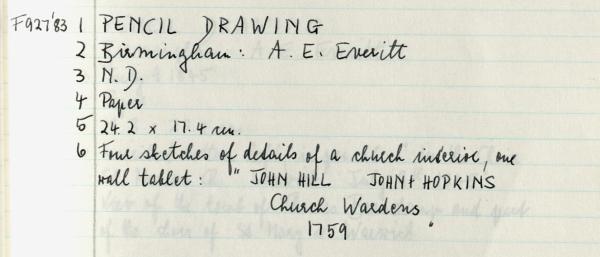 F927'83 1 PENCIL DRAWING
2 Birmingham: A. E. Everitt
3 N.D.
4 Paper
5 24.2 x 17.4 cm.
6 Four sketches of details of a church interior, one
wall tablet: "JOHN HILL JOHN HOPKINS
Church Wardens
1759 "